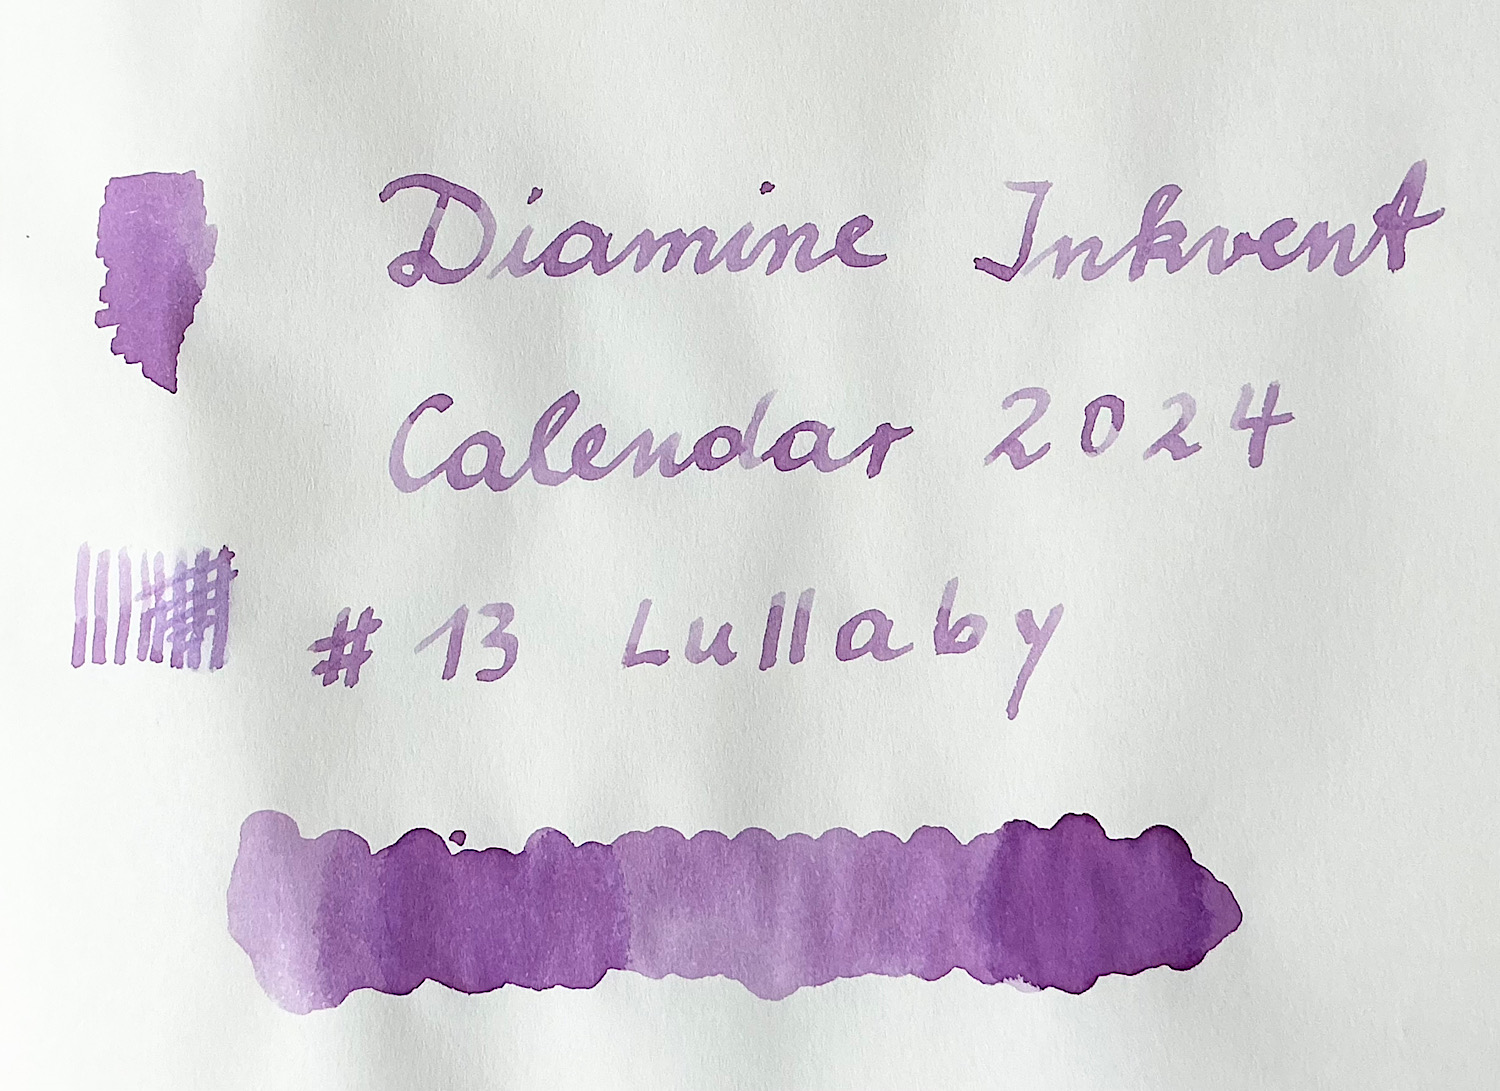 Diamine Inkvent
Calendar 2024
# 13 Lullaby